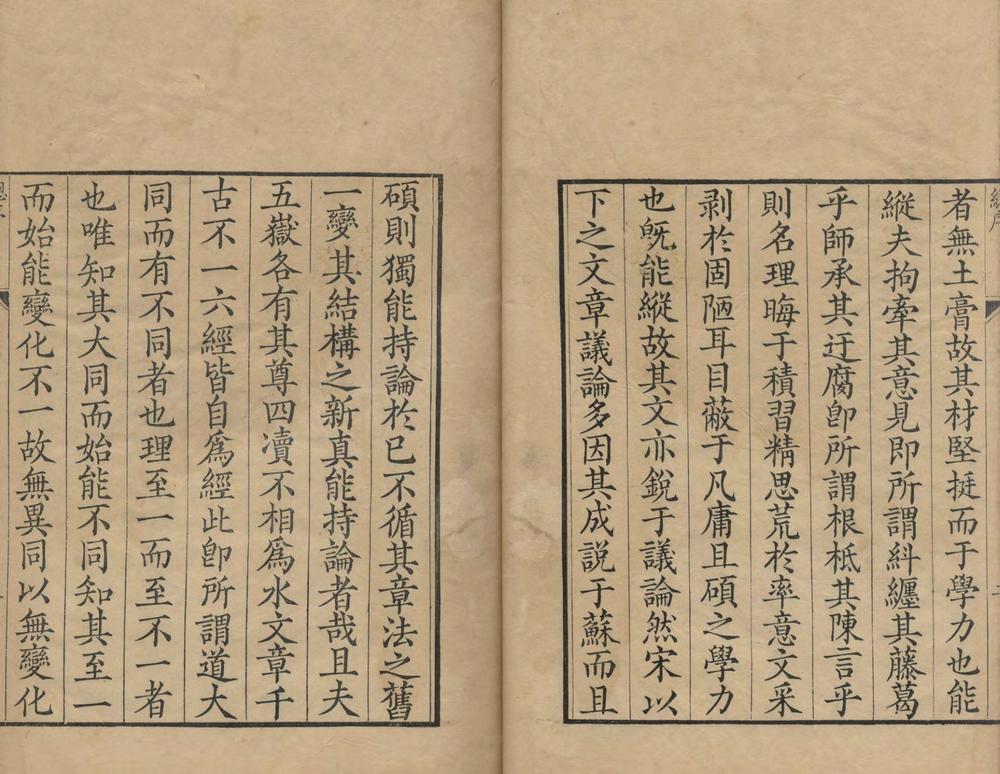 者無土膏故其材堅挺而于學力也能
縱夫拘牽其意見即所謂糾纏其藤葛
乎師承其迂腐卽所謂根柢其陳言乎
則名理晦于積習精思荒於率意文采
剥於固陋耳目蔽于凡庸且碩之學力
也旣能縱故其文亦銳于議論然宋以
下之文章議論多因其成説于蘇而且
碩則獨能持論於已不循其章法之舊
一變其結構之新真能持論者哉且夫
五嶽各有其尊四瀆不相爲水文章千
古不一六經皆自爲經此卽所謂道大
同而有不同者也理至一而至不一者
也唯知其大同而始能不同知其至一
而始能變化不一故無異同以無變化